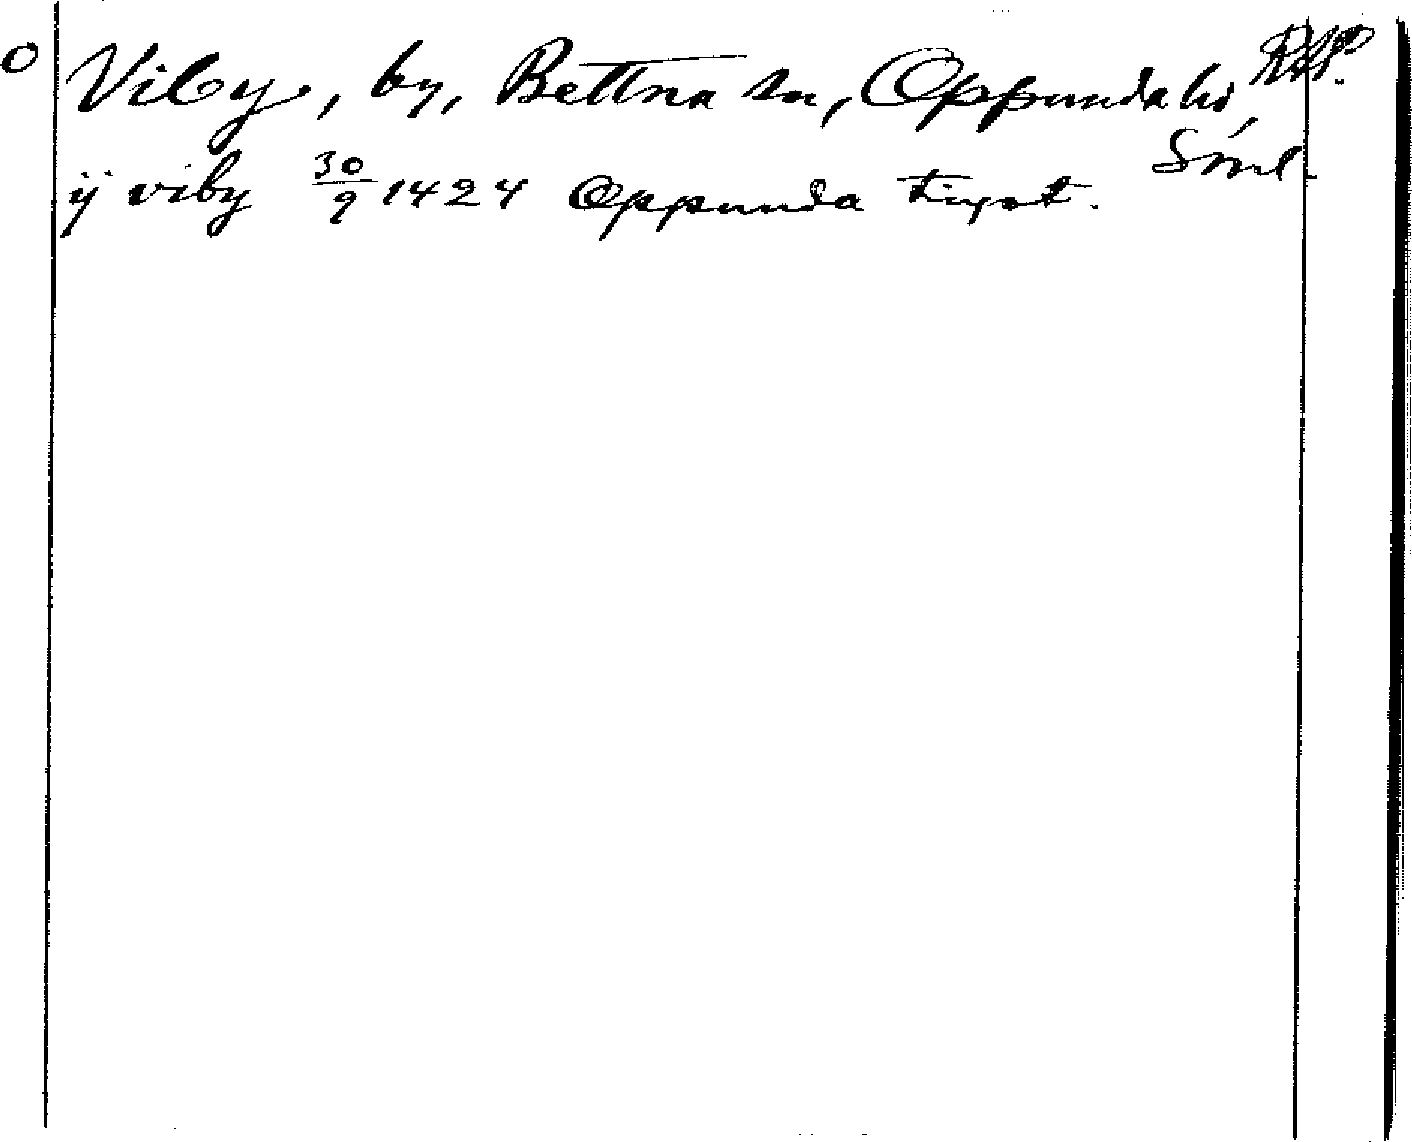 O Viby, by, Bettna sn, Oppunda hd
Söml.
ÿ viby 30/9 1424 Oppunda tingst.